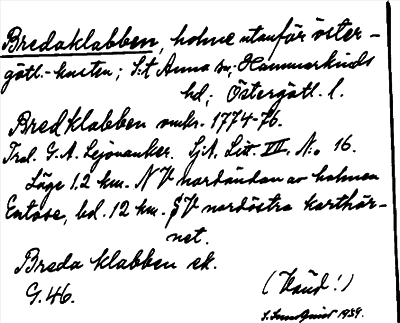 Bredaklabben, holme utanför öster-
götl.-kusten; S:t Anna sn; Hammarkinds
hd; Östergötl. l.
Bredklabben omkr. 1774-76.
Trol. G. A. Lejonanker. Sj.A. Litt. III. No 16.
Läge 1,2 km. NV nordändan av holmen
Entose, bd. 12 km. SV nordöstra karthör-
net.
Breda klabben ek.
G.46. (Hand!)
1939.